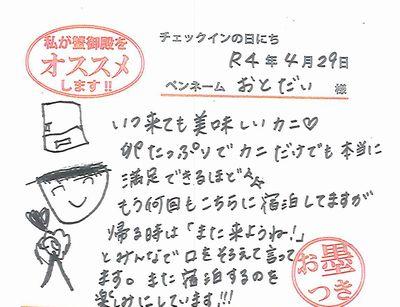 私が蟹御殿を
オススメ
します!!
チェックインの日にち
R4年4月29日
ペンネーム おとだい 様
いつ来ても美味しいカニ♡
たっぷりでカニだけでも本当に
満足できるほど☆☆
もう何回もこちらに宿泊してますが
帰る時は「また来ようね!」
とみんなで口をそろえて言って
ます。また宿泊するのを
楽しみにしています!!!
お墨
つき